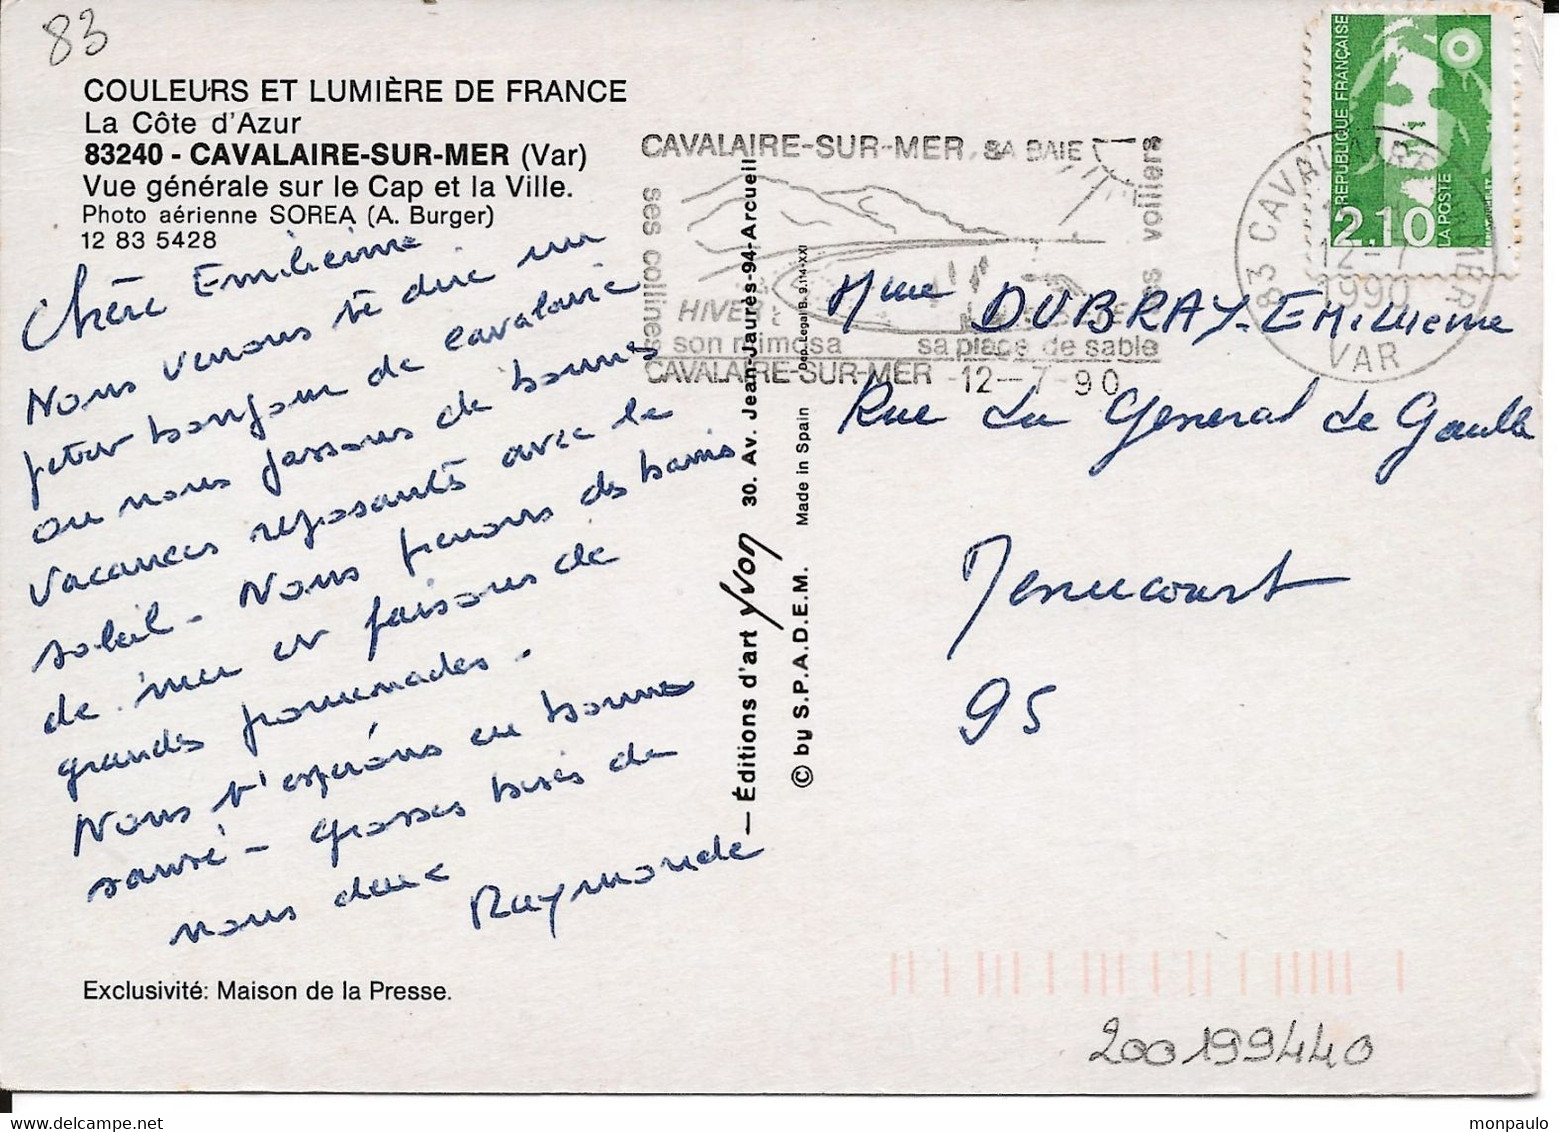 83
COULEURS ET LUMIÈRE DE FRANCE
La Côte d'Azur
83240 - CAVALAIRE-SUR-MER (Var)
Vue générale sur le Cap et la Ville.
Photo aérienne SOREA (A. Burger)
12 83 5428
Chère Emilienne
Nous venons te dire un
petit bonjour de cavalaire
ou nous passons de bonnes
vacances reposantes avec le
soleil - Nous prenons des bains
de mer et faisons de
grandes promenades.
Nous t'espérons en bonne
santé - grosses bises de
nous deux
Raymonde
Exclusivité: Maison de la Presse.
— Éditions d'art yvon 30. Av. Jean-Jaurès-94-Arcueil
© by S.P.A.D.E.M. Made in Spain Dep. Legal B. 9.114-XXI
CAVALAIRE-SUR-MER SA BAIE
ses collines
ses voiliers
HIVER
son mimosa sa plage de sable
CAVALAIRE-SUR-MER -12-7-90
RÉPUBLIQUE FRANÇAISE
2,10
LA POSTE
83 CAVALAIRE
12-7
1990
VAR
Mme DUBRAY-Emilienne
Rue du General de Gaulle
95
200199440
monpaulo